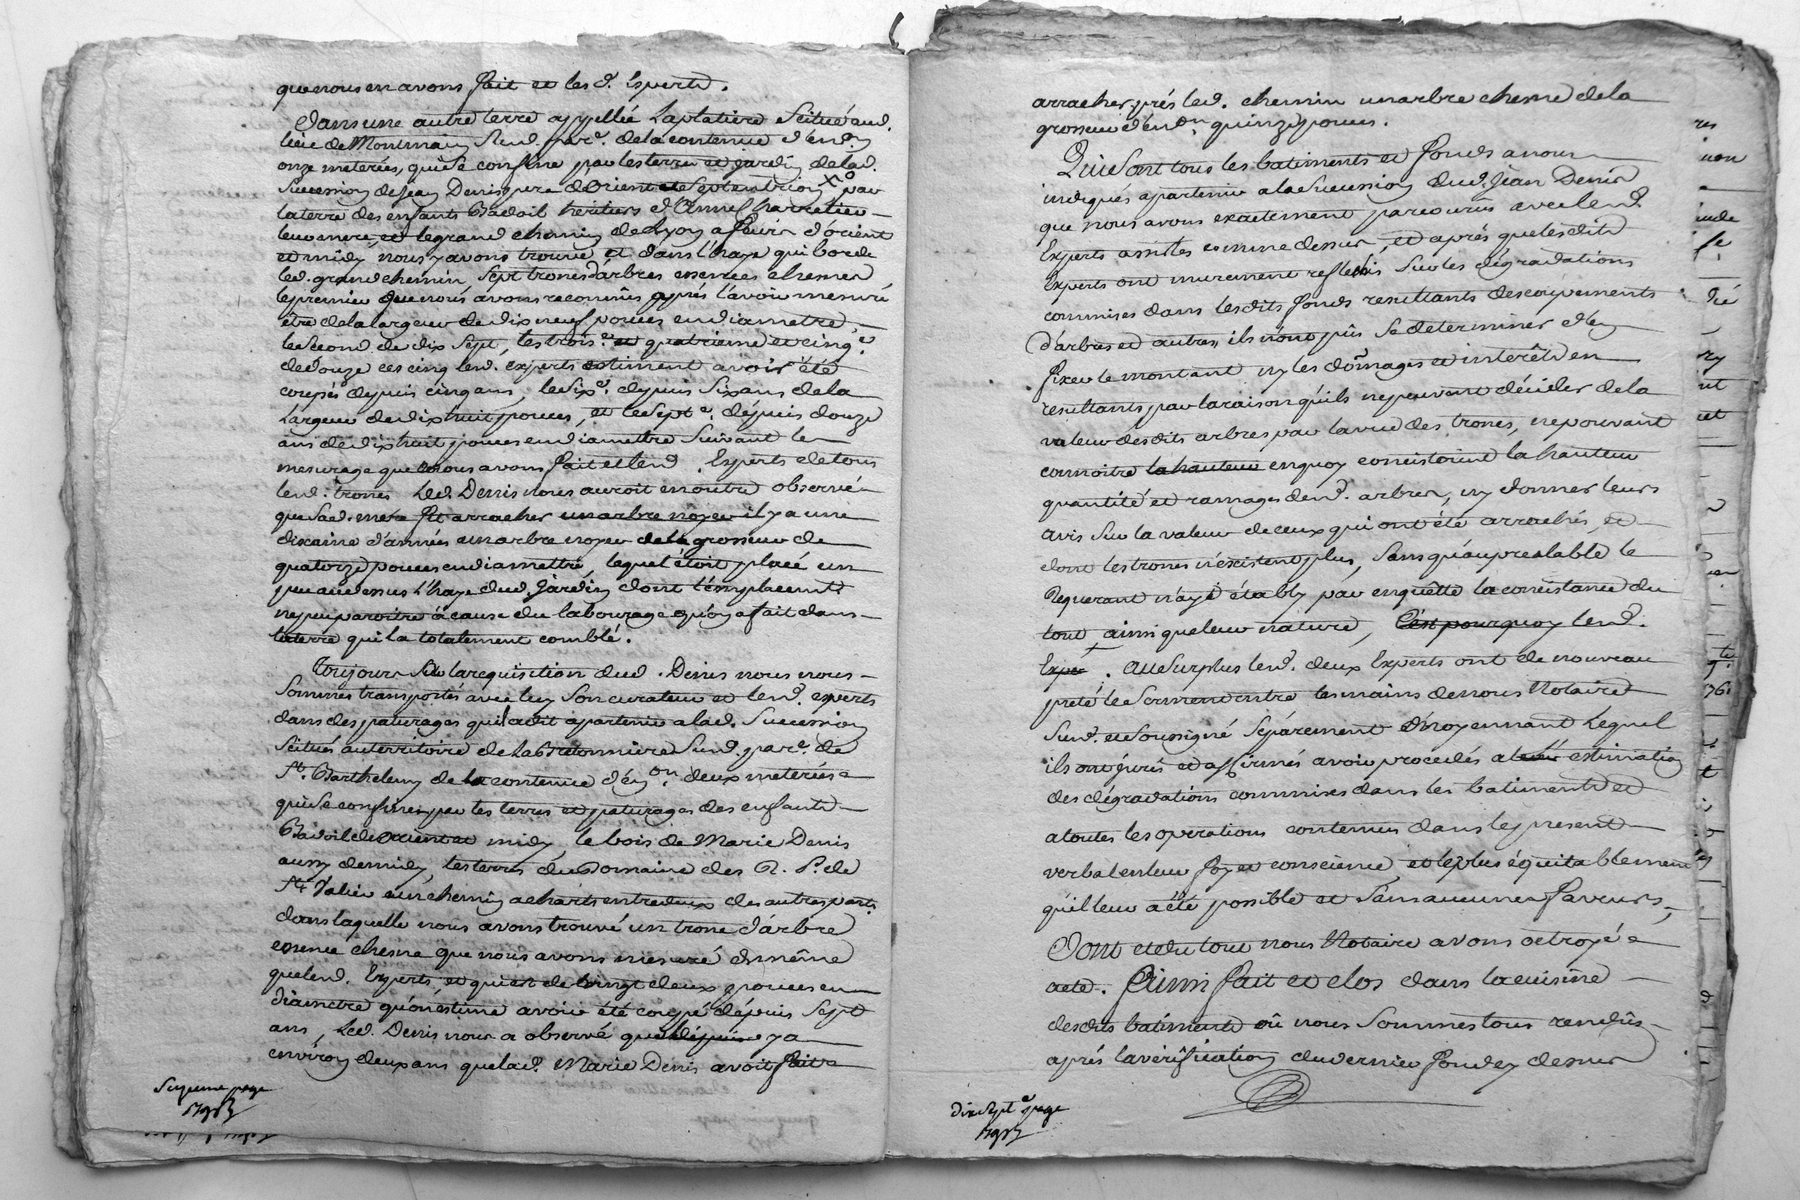 que nous en avons fait et les d. Experts.
Dans une autre terre appellée Laplatiere Scitué aud.
lieu de Montmain Sud. par.e de la contenue d'en.on
onze meterées, qui se confine par les terre et jardin de lad.
Succession de Jean Denis pere d'orient et Septentrion x par
la terre des enfants Badoil heritiers d'Anne Charretier
leur mere, et le grand chemin de Lyon a feurs d'orient
et midy nous y avons trouvé et dans l'haye qui borde
led. grand chemin, Sept troncs d'arbres essences chesnes
le premier que nous avons reconnus après l'avoir mesuré
être de la largeur de dix neuf pouces en diametre,
le second de dix Sept, les trois.e et quatrieme et cinq.e
de douze ces cinq led. experts estiment avoir été
coupés depuis cinq ans, le six.e depuis six ans de la
largeur de dix huit pouces, et le sept.e depuis douze
ans de dix huit pouces en diamettre suivant le
mesurage que nous avons fait et led. Experts de tous
led. troncs Led. Denis nous auroit encontre observé
que sad. mere fit arracher un arbre noyer il y a une
dixaine d'années un arbre noyer de la grosseur de
quatorze pouces en diamettre, lequel étoit placé un
peu au dessus l'haye dud. Jardin dont l'emplacem.t
ne peu paroitre à cause du labourage qu'on a fait dans
la terre qui l'a totalement comblé.
Toujours sur la requisition dud. Denis nous nous
Sommes transportés avec luy son curateur et led. experts
dans des paturages qu'il a dit apartenir a lad. Succession
Scitués au territoire de La Bretonniere Sud. par.e de
St. Barthelemy de la contenue d'en.on deux meterées
qui se confinent par les terres et paturages des enfants
Badoil de orient et midy, le bois de Marie Denis
aussy de midy, les terres du Domaine des R. P. de
St Valier un chemin a chars entre deux des autres parts
dans laquelle nous avons trouvé un tronc d'arbre
essence chesne que nous avons mesuré de même
que led. Experts, et qui est de vingt deux pouces en
diametre qu'on estime avoir été coupé depuis sept
ans, Led. Denis nous a observé que depuis y a
environ deux ans que lad. Marie Denis avoit fait
Seizieme page
arracher près led. chemin un arbre chesne de la
grosseur d'en.on quinze pouces.
Qui Sont tous les batiments et fonds a nous
indiqués apartenir a la Succession dud. Jean Denis
que nous avons exactement parcourus avec led.
Experts assistés comme dessus, et après que lesdits
Experts ont murement reflechis Sur les dégradations
commises dans lesdits fonds resultants des coupements
d'arbres et autres, ils n'ont pus Se determiner d'en
fixer le montant ny les dômages et intérêts en
resultants par la raison qu'ils ne peuvent décider de la
valeur desdits arbres par la vue des troncs, ne pouvant
connoitre la hauteur en quoy consistoient la hauteur
quantité et ramages desd. arbres, ny donner leurs
avis Sur la valeur de ceux qui ont été arrachés, et
dont les troncs n'existent plus, Sans qu'au prealable le
Requerant n'aye étably par enquête la consistance du
tout, ainsi que leur nature, C'est pourquoy led.
Exper. Au Surplus led. deux Experts ont de nouveau
preté le Serment entre les mains de nous Notaire
Sud. et Soussigné Séparement Moyennant lequel
ils ont jurés et affirmés avoir procedés a leur estimation
des dégradations commises dans les batiments et
a toutes les operations contenues dans le present
verbal en leur foy et conscience, et le plus équitablement
qu'il leur a été possible et Sans aucune faveurs,
Dont et du tout nous Notaire avons octroyé
acte. Ainsi fait et clos dans la cuisine
desdits batiments où nous Sommes tous rendus
après la verification du dernier fond cy dessus
dix sept.e page